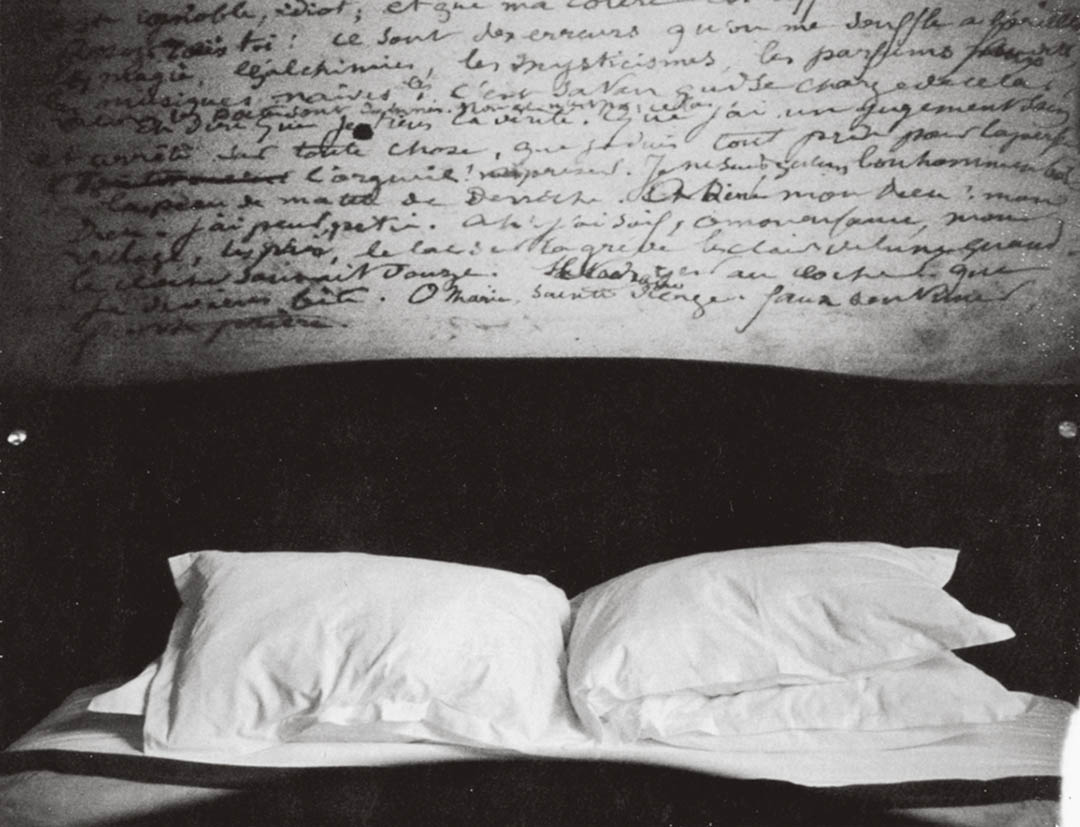 ignoble, idiot; et que ma colère
Tais toi! ce sont des erreurs qu'on me souffle à l'oreille
la magie, l'alchimies, les mysticismes, les parfums faux
les musiques naïves. c'est Satan qui se charge de cela.
Alors les poètes sont damnés. Non ce n'est pas cela.
Et dire que je tiens la vérité. Que j'ai un jugement sain
et arrêté sur toute chose, que je suis tout prêt pour la perf
l'orgueil! à présent. Je ne suis qu'un bonhomme en bois
la peau de ma tête se dessèche. O Dieu! mon Dieu! mon
Dieu. J'ai peur, pitié. Ah! j'ai soif, ô mon enfance, mon
village, les prés, le lac sur la grève le clair de lune quand
le clocher sonnait douze. au clocher. que
je deviens bête. O Marie, Sainte Vierge. faux sentiment,
fausse prière.